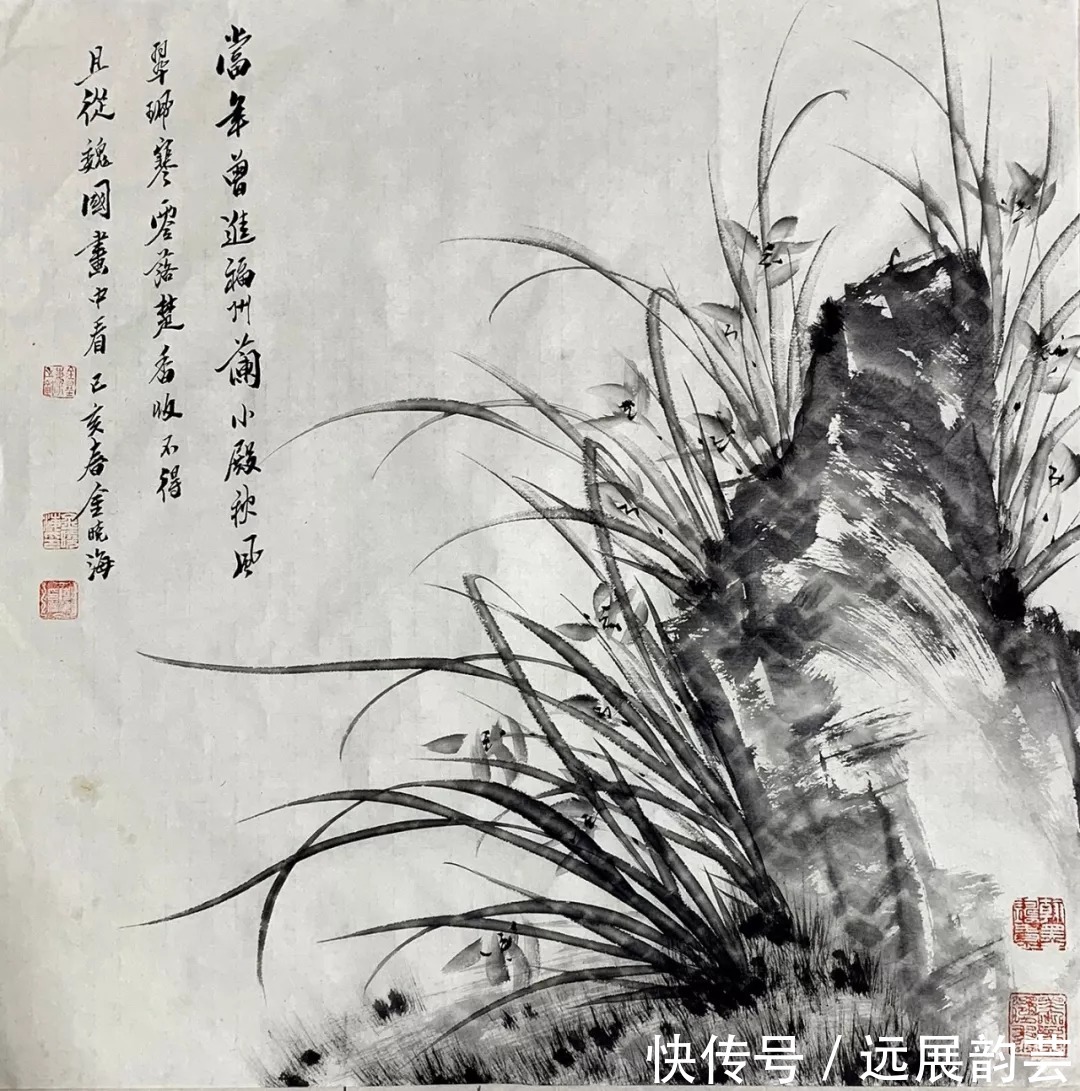 當年曾進福州蘭小殿秋風
翠珮寒零落楚香收不得
且從魏國畫中看 己亥春金曉海
快传号 / 远展韵芸